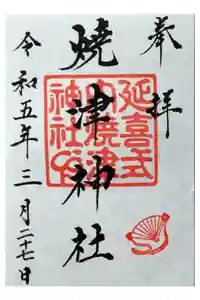 奉拝
焼津神社
延喜式
内焼津
神社印
令和五年三月二十七日